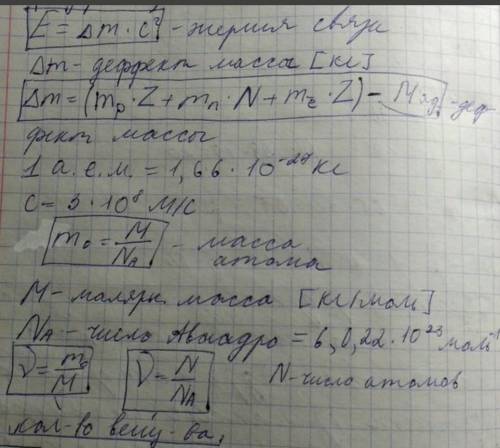 E = Δm · c² - энергия связи
Δm - деффект масса [кг]
Δm = (mp · Z + mn · N + me · Z) - Mяд. - деф
фект массы
1 а.е.м. = 1,66 · 10⁻²⁷ кг
c = 3 · 10⁸ м/с
m₀ = M/NA - масса
атома
M - малярн. масса [кг/моль]
NA - число Авогадро = 6,0,22 · 10²³ моль⁻¹
ν = m/M ν = N/NA N - число атомов
кол-во вещ-ва,